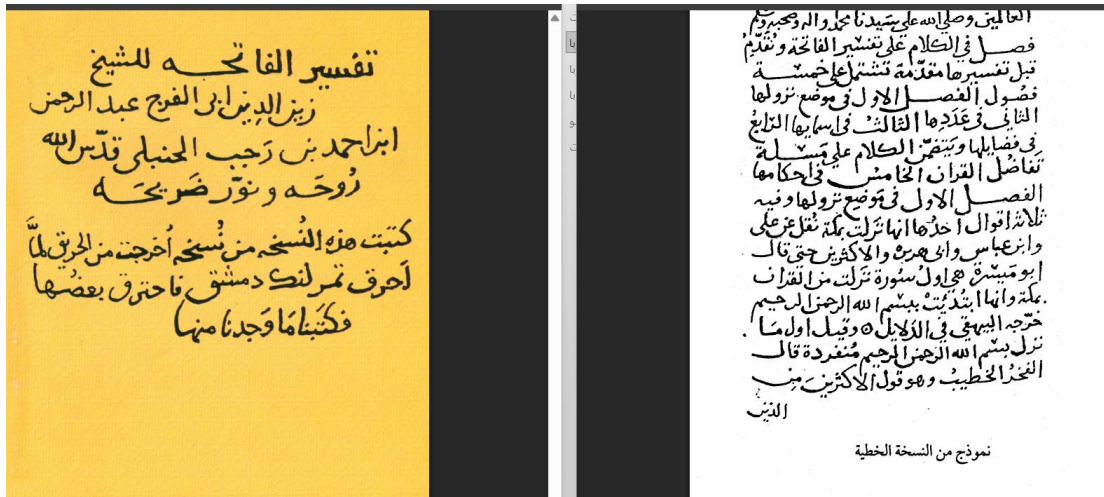 تفسير الفاتحــه للشيخ
زين الدين ابى الفرج عبد الرحمن
ابن احمد بن رَجب الحنبلى قدّس الله
رُوحَه ونوّر ضَريحَه
كتبت هذه النُسخه من نُسخه اُخرجت من الحريق لمَّا
اَحرق تمرلنك دمشق فاحترق بعضُها
فكتَبنا مَا وَجدنا منها
العالمين وصلى الله على سَيدنا محمد واله وصحبه وسلم
فصــل فى الكلام على تفسير الفاتحة ونُقدّمُ
قبل تفسيرها مقدّمة تشتمل على خمســة
فصُول الفصــل الاول فى موضع نزولها
الثانى فى عَدَدِها الثالث فى اسمايها الرابع
فى فضايلها ويتضمّن الكلام على مَسْــلة
تَفاضُل القران الخامس فى احكامها
الفصــل الاول فى مَوضع نزولها وفيه
ثلاثة اقوال اَحدُها انها نزلت بمكة نُقل عن على
وابن عباس وابى هريرة والاكثرين حتى قال
ابو مَيسرة هى اول سُورة نزلت من القران
بمكة وانها ابتُدِئَتْ ببسم الله الرحمن الرحيم
خرّجه البيهقى فى الدلايل ه وقيل اول مَا
نزل بسْم الله الرحمن الرحيم مُنفردة قال
الفخرُ الخطيبُ وهو قول الاكثرينَ مِن
الذين
نموذج من النسخة الخطية